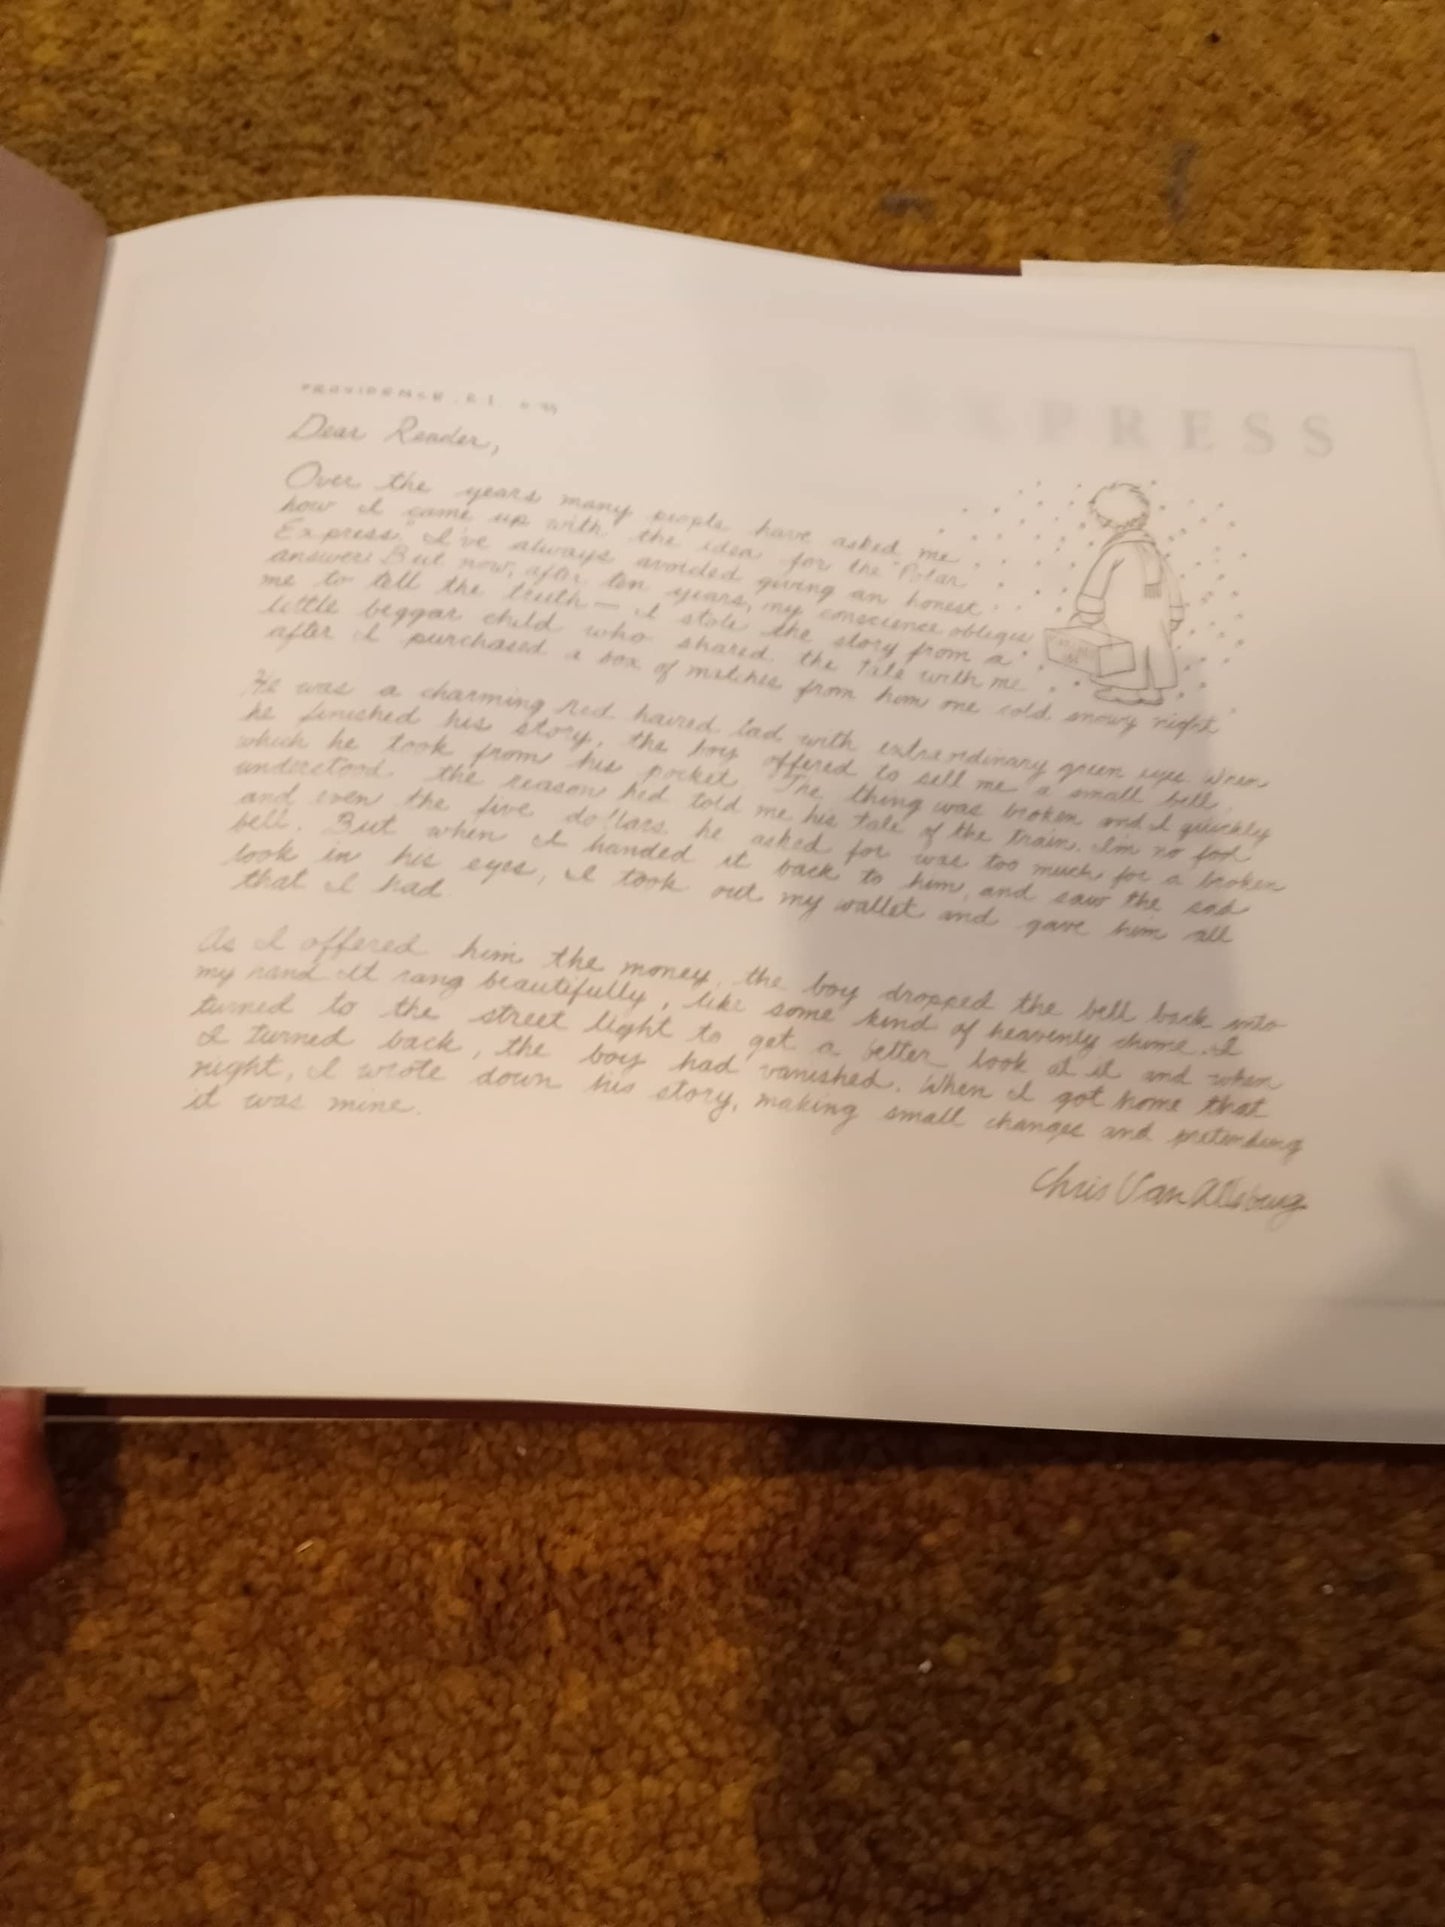 PROVIDENCE, R.I.
EXPRESS
Dear Reader,
Over the years many people have asked me
how I came up with the idea for the "Polar
Express." I've always avoided giving an honest
answer. But now, after ten years, my conscience obliges
me to tell the truth — I stole the story from a
little beggar child who shared the tale with me
after I purchased a box of matches from him one cold snowy night
He was a charming red haired lad with extraordinary green eyes. When
he finished his story, the boy offered to sell me a small bell
which he took from his pocket. The thing was broken and I quickly
understood the reason he'd told me his tale of the train. I'm no fool
and even the five dollars he asked for was too much for a broken
bell. But when I handed it back to him, and saw the sad
look in his eyes, I took out my wallet and gave him all
that I had
As I offered him the money, the boy dropped the bell back into
my hand. It rang beautifully, like some kind of heavenly chime. I
turned to the street light to get a better look at it and when
I turned back, the boy had vanished. When I got home that
night, I wrote down his story, making small changes and pretending
it was mine.
Chris Van Allsburg